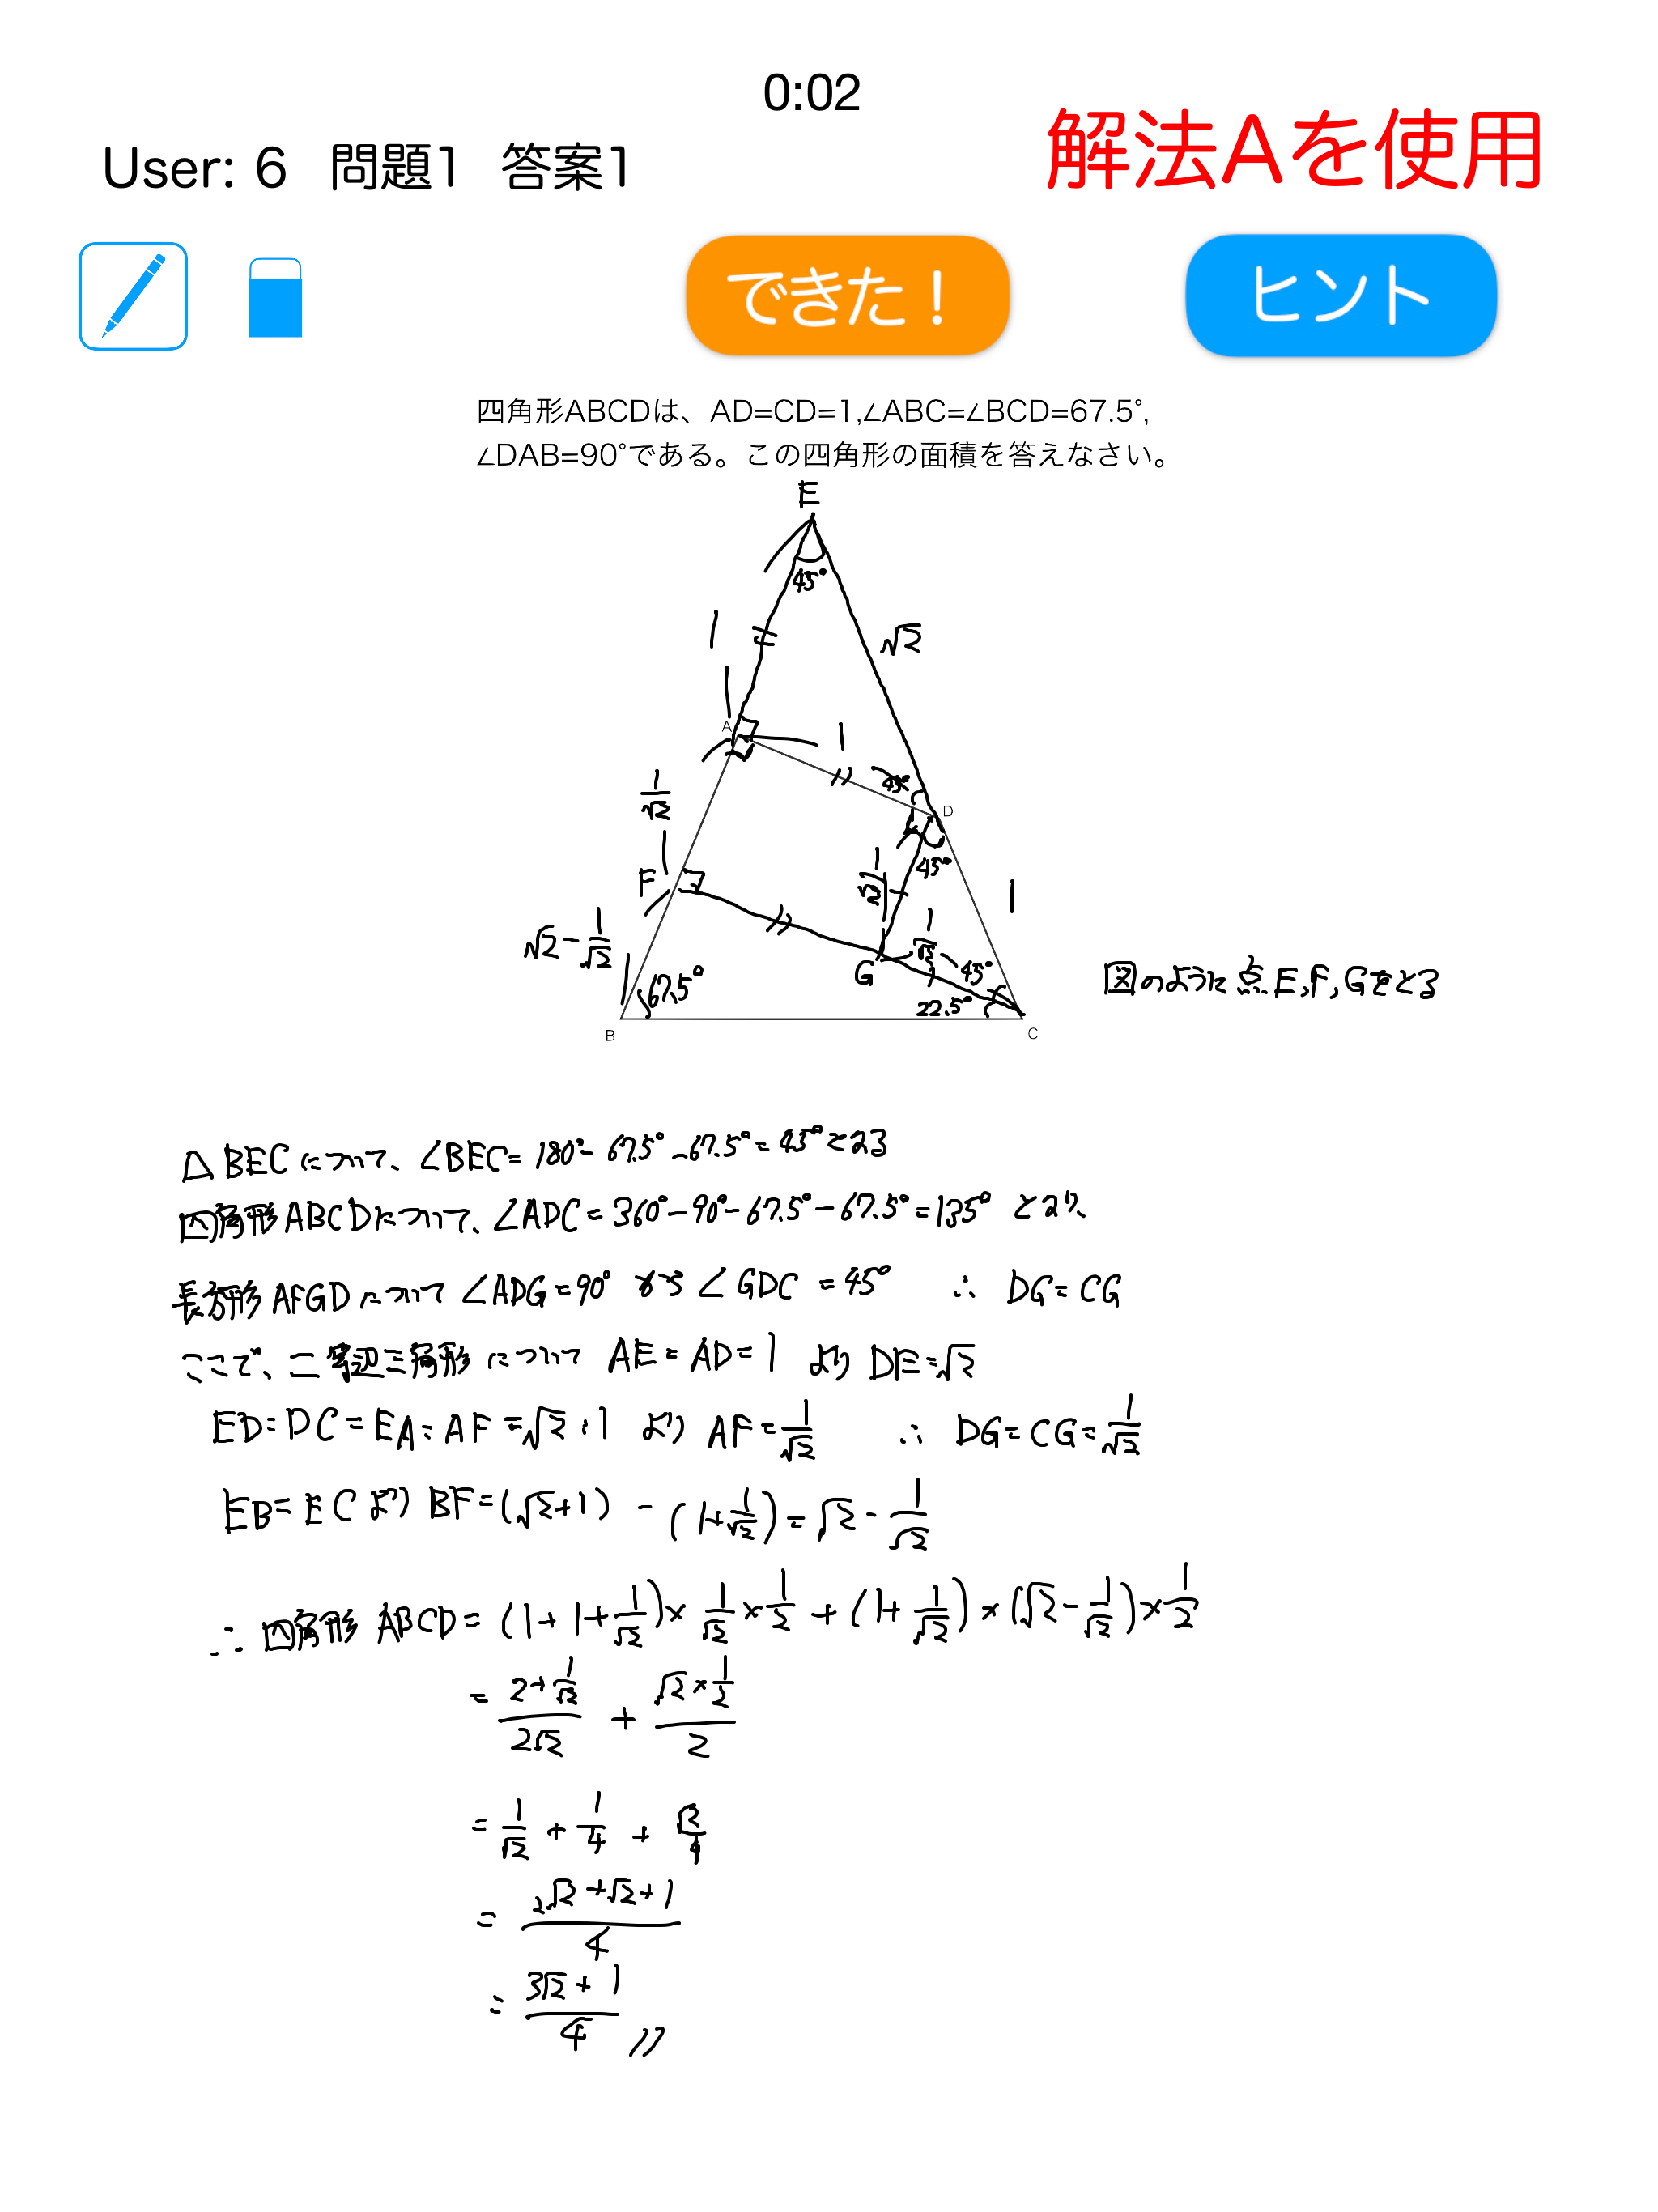 0:02
解法Aを使用
User: 6 問題1 答案1
できた！
ヒント
四角形ABCDは、AD=CD=1,∠ABC=∠BCD=67.5°,
∠DAB=90°である。この四角形の面積を答えなさい。
E
45°
1
√2
A
1
1/√2
45°
D
45°
1/√2
F
1
1/√2
√2-1/√2
G
45°
67.5°
22.5°
B
C
図のように点E,F,Gをとる
△BECについて、∠BEC=180°-67.5°-67.5°=45°となる
四角形ABCDについて、∠ADC=360°-90°-67.5°-67.5°=135°となり、
長方形AFGDについて∠ADG=90°から∠GDC=45° ∴ DG=CG
ここで、二等辺三角形について AE=AD=1 より DE=√2
ED:DC=EA:AF=√2:1 より AF=1/√2 ∴ DG=CG=1/√2
EB=ECより BF=(√2+1)-(1+1/√2)=√2-1/√2
∴ 四角形ABCD=(1+1+1/√2)×1/√2×1/2+(1+1/√2)×(√2-1/√2)×1/2
=(2+1/√2)/2√2+(√2×1/2)/2
=1/√2+1/4+√2/4
=(2√2+√2+1)/4
=(3√2+1)/4 //